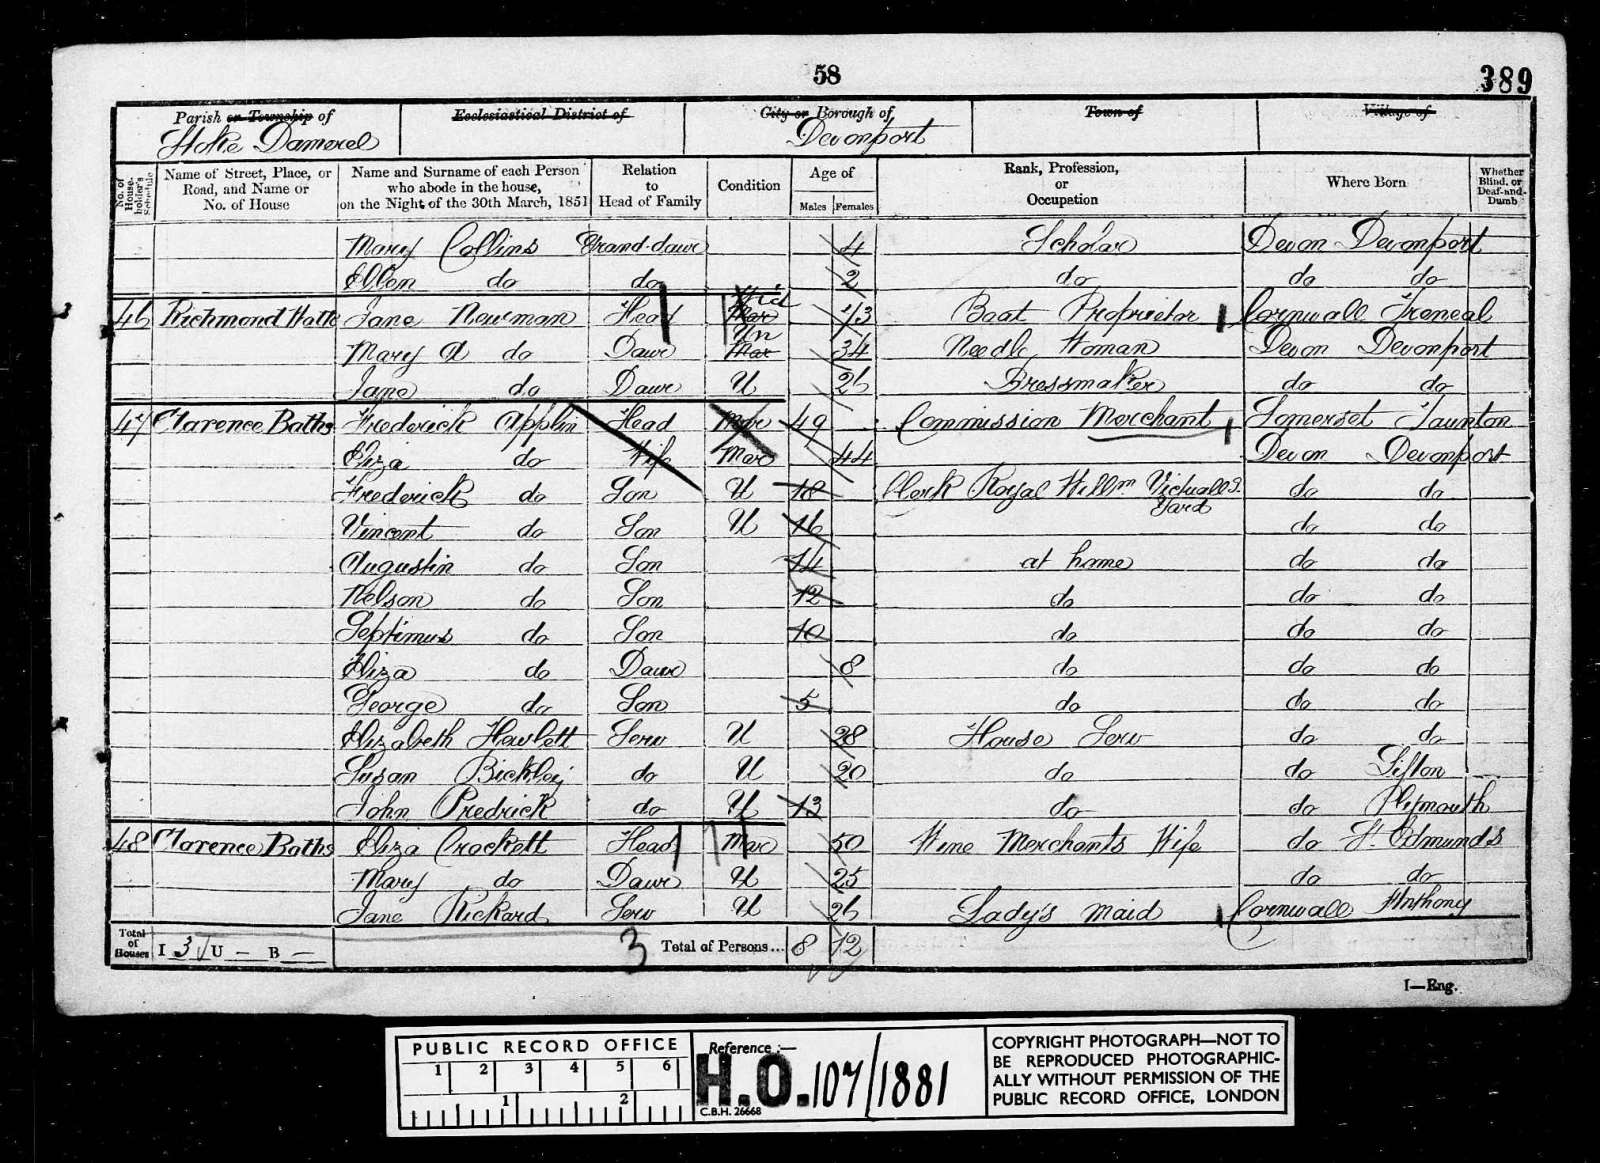 58
389
Parish or Township of
Ecclesiastical District of
City or Borough of
Town of
Village of
Stoke Damerel
Devonport
No. of House-holder's Schedule
Name of Street, Place, or Road, and Name or No. of House
Name and Surname of each Person who abode in the house, on the Night of the 30th March, 1851
Relation to Head of Family
Condition
Age of
Males
Females
Rank, Profession, or Occupation
Where Born
Whether Blind, or Deaf-and-Dumb
Mary Collins Grand-daur 4 Scholar Devon Devonport
Ellen do do 2 do do do
46 Richmond Jane Newman Head Wid Mar 73 Boat Proprietor Cornwall
Mary A do Daur Un Mar 34 Needle Woman Devon Devonport
Jane do Daur U 26 Dressmaker do do
47 Clarence Baths Frederick Applin Head Mar 49 Commission Merchant Somerset Taunton
Eliza do Wife Mar 44 Devon Devonport
Frederick do Son U 18 Clerk Royal Willm Victuallg. Yard do do
Vincent do Son U 16 do do
Augustin do Son 14 at home do do
Nelson do Son 12 do do do
Septimus do Son 10 do do do
Eliza do Daur 8 do do do
George do Son 5 do do do
Elizabeth Hewlett Serv U 28 House Serv do do
Susan Bickley do U 20 do do Lifton
John Predrick do U 13 do do Plymouth
48 Clarence Baths Eliza Crockett Head Mar 50 Wine Merchants Wife do St. Edmund's
Mary do Daur U 25 do do
Jane Rickard Serv U 26 Lady's Maid Cornwall Anthony
Total of Houses I 3 U – B –
3 Total of Persons... 8 12
I—Eng.
PUBLIC RECORD OFFICE
1 2 3 4 5 6
1 2
Reference :—
H.O. 107/1881
C.B.H. 26668
COPYRIGHT PHOTOGRAPH—NOT TO
BE REPRODUCED PHOTOGRAPHIC-
ALLY WITHOUT PERMISSION OF THE
PUBLIC RECORD OFFICE, LONDON